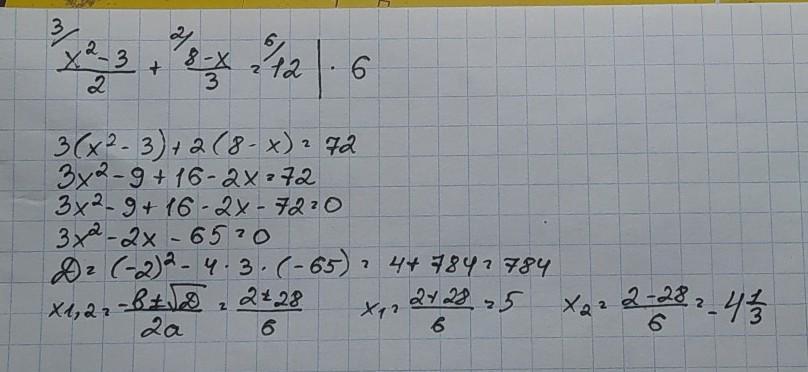 ³/ (x² - 3)/2 + ²/ (8 - x)/3 = ⁶/ 12 | · 6
3(x² - 3) + 2(8 - x) = 72
3x² - 9 + 16 - 2x = 72
3x² - 9 + 16 - 2x - 72 = 0
3x² - 2x - 65 = 0
D = (-2)² - 4 · 3 · (-65) = 4 + 784 = 784
x1,2 = (-b ± √D)/2a = (2 ± 28)/6 x₁ = (2 + 28)/6 = 5 x₂ = (2 - 28)/6 = -4 1/3